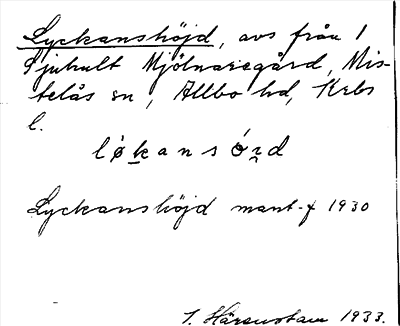 Lyckanshöjd, avs från 1
Sjuhult Mjölnaregård, Mis-
telås sn, Allbo hd, Krbs
l.
løkansórd
Lyckanshöjd mant-f 1930
I. Härenstam 1933.